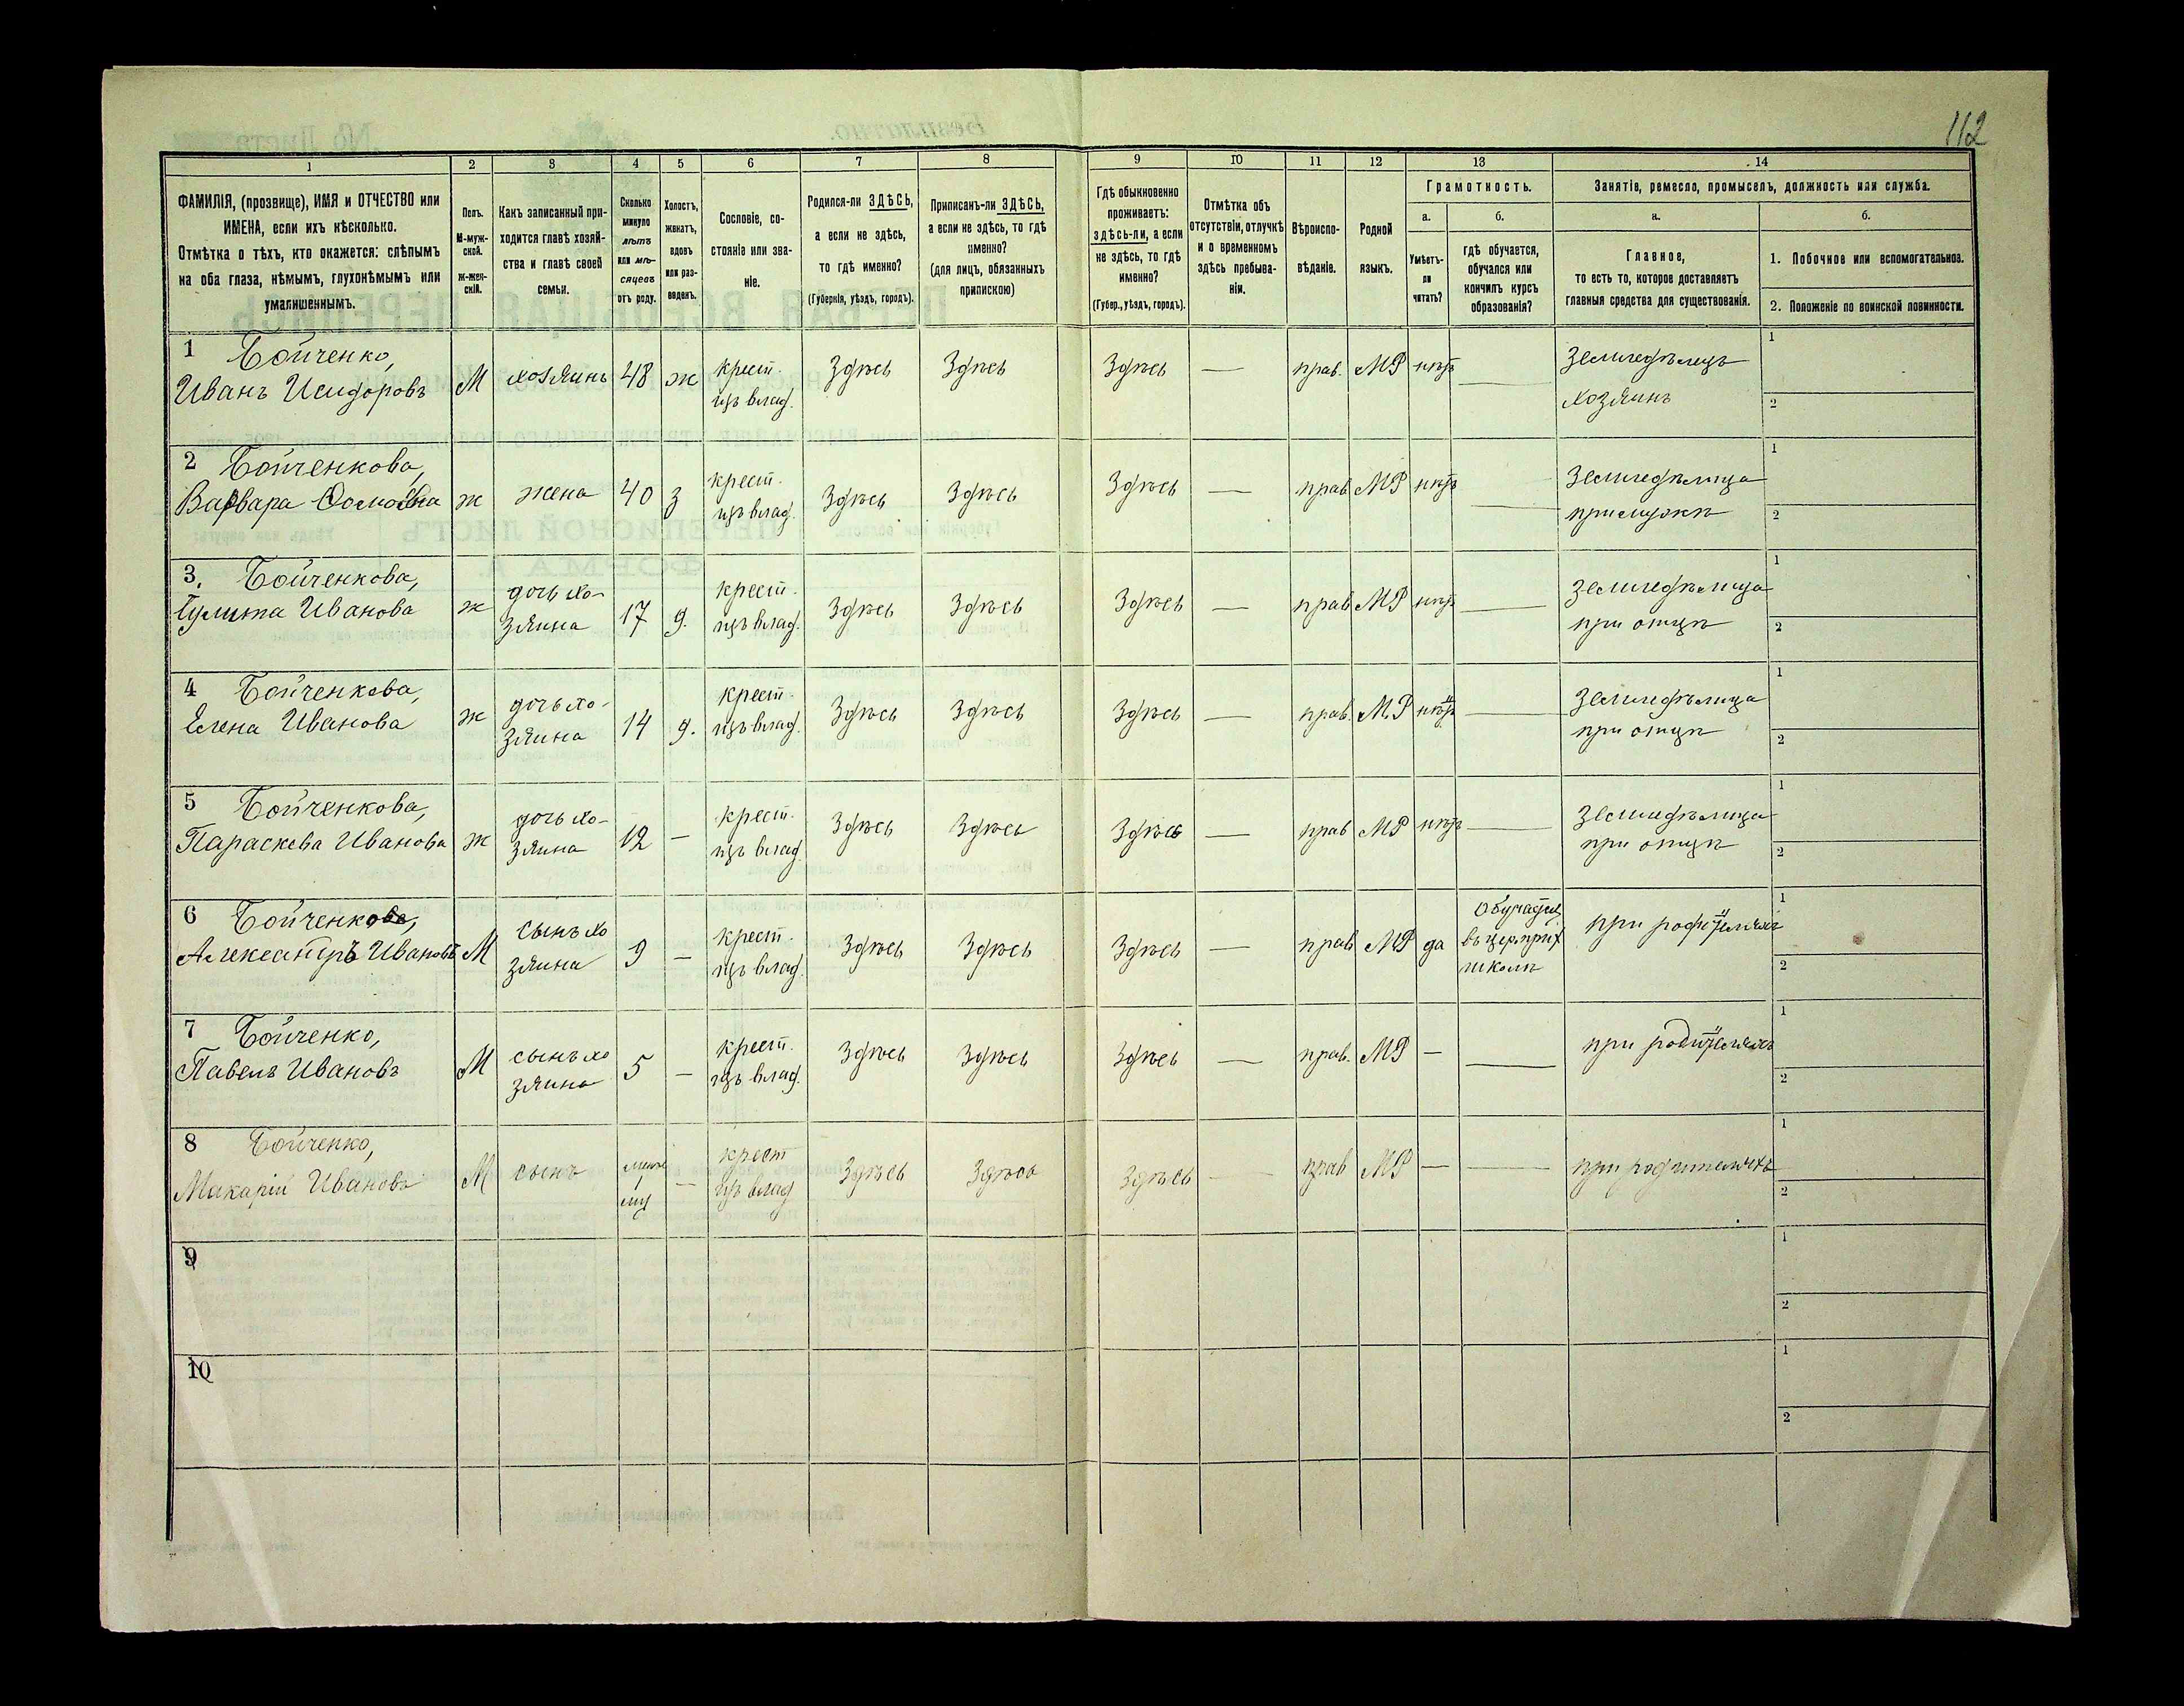 112
1 2 3 4 5 6 7 8 9 10 11 12 13 14
ФАМИЛІЯ, (прозвище), ИМЯ и ОТЧЕСТВО или ИМЕНА, если ихъ нѣсколько.
Отмѣтка о тѣхъ, кто окажется: слѣпымъ на оба глаза, нѣмымъ, глухонѣмымъ или умалишеннымъ.
Полъ. М-мужской. ж-женскій.
Какъ записанный приходится главѣ хозяйства и главѣ своей семьи.
Сколько минуло лѣтъ или мѣсяцевъ отъ роду.
Холостъ, женатъ, вдовъ или разведенъ.
Сословіе, состояніе или званіе.
Родился-ли ЗДѢСЬ, а если не здѣсь, то гдѣ именно?
(Губернія, уѣздъ, городъ).
Приписанъ-ли ЗДѢСЬ, а если не здѣсь, то гдѣ именно?
(для лицъ, обязанныхъ припискою)
Гдѣ обыкновенно проживаетъ: здѣсь-ли, а если не здѣсь, то гдѣ именно?
(Губер., уѣздъ, городъ).
Отмѣтка объ отсутствіи, отлучкѣ и о временномъ здѣсь пребываніи.
Вѣроисповѣданіе.
Родной языкъ.
Грамотность.
а. Умѣетъ-ли читать?
б. гдѣ обучается, обучался или кончилъ курсъ образованія?
Занятіе, ремесло, промыселъ, должность или служба.
а. Главное, то есть то, которое доставляетъ главныя средства для существованія.
б. 1. Побочное или вспомогательное.
2. Положеніе по воинской повинности.
1 Бойченко, Иванъ Исидоровъ М хозяинъ 48 ж крест. изъ влад. Здѣсь Здѣсь Здѣсь — прав. МР нѣтъ — Земледѣлецъ хозяинъ 1 2
2 Бойченкова, Варвара Ѳомовна ж жена 40 з крест. изъ влад. Здѣсь Здѣсь Здѣсь — прав МР нѣтъ — Земледѣлица при мужѣ 1 2
3. Бойченкова, Іулита Иванова ж дочь хозяина 17 д. крест. изъ влад. Здѣсь Здѣсь Здѣсь — прав МР нѣтъ — Земледѣлица при отцѣ 1 2
4 Бойченкова, Елена Иванова ж дочь хозяина 14 д. крест. изъ влад. Здѣсь Здѣсь Здѣсь — прав. МР нѣтъ — Земледѣлица при отцѣ 1 2
5 Бойченкова, Параскева Иванова ж дочь хозяина 12 — крест. изъ влад Здѣсь Здѣсь Здѣсь — прав МР нѣтъ — Земледѣлица при отцѣ 1 2
6 Александръ Ивановъ М сынъ хозяина 9 — крест. изъ влад. Здѣсь Здѣсь Здѣсь — прав МР да въ школѣ при родителяхъ 1 2
7 Бойченко, Павелъ Ивановъ М сынъ хозяина 5 — крест. изъ влад. Здѣсь Здѣсь Здѣсь — прав. МР — — при родителяхъ 1 2
8 Бойченко, Макарій Ивановъ М сынъ 1 — крест изъ влад Здѣсь Здѣсь Здѣсь — прав МР — — при родителяхъ 1 2
9 1 2
10 1 2